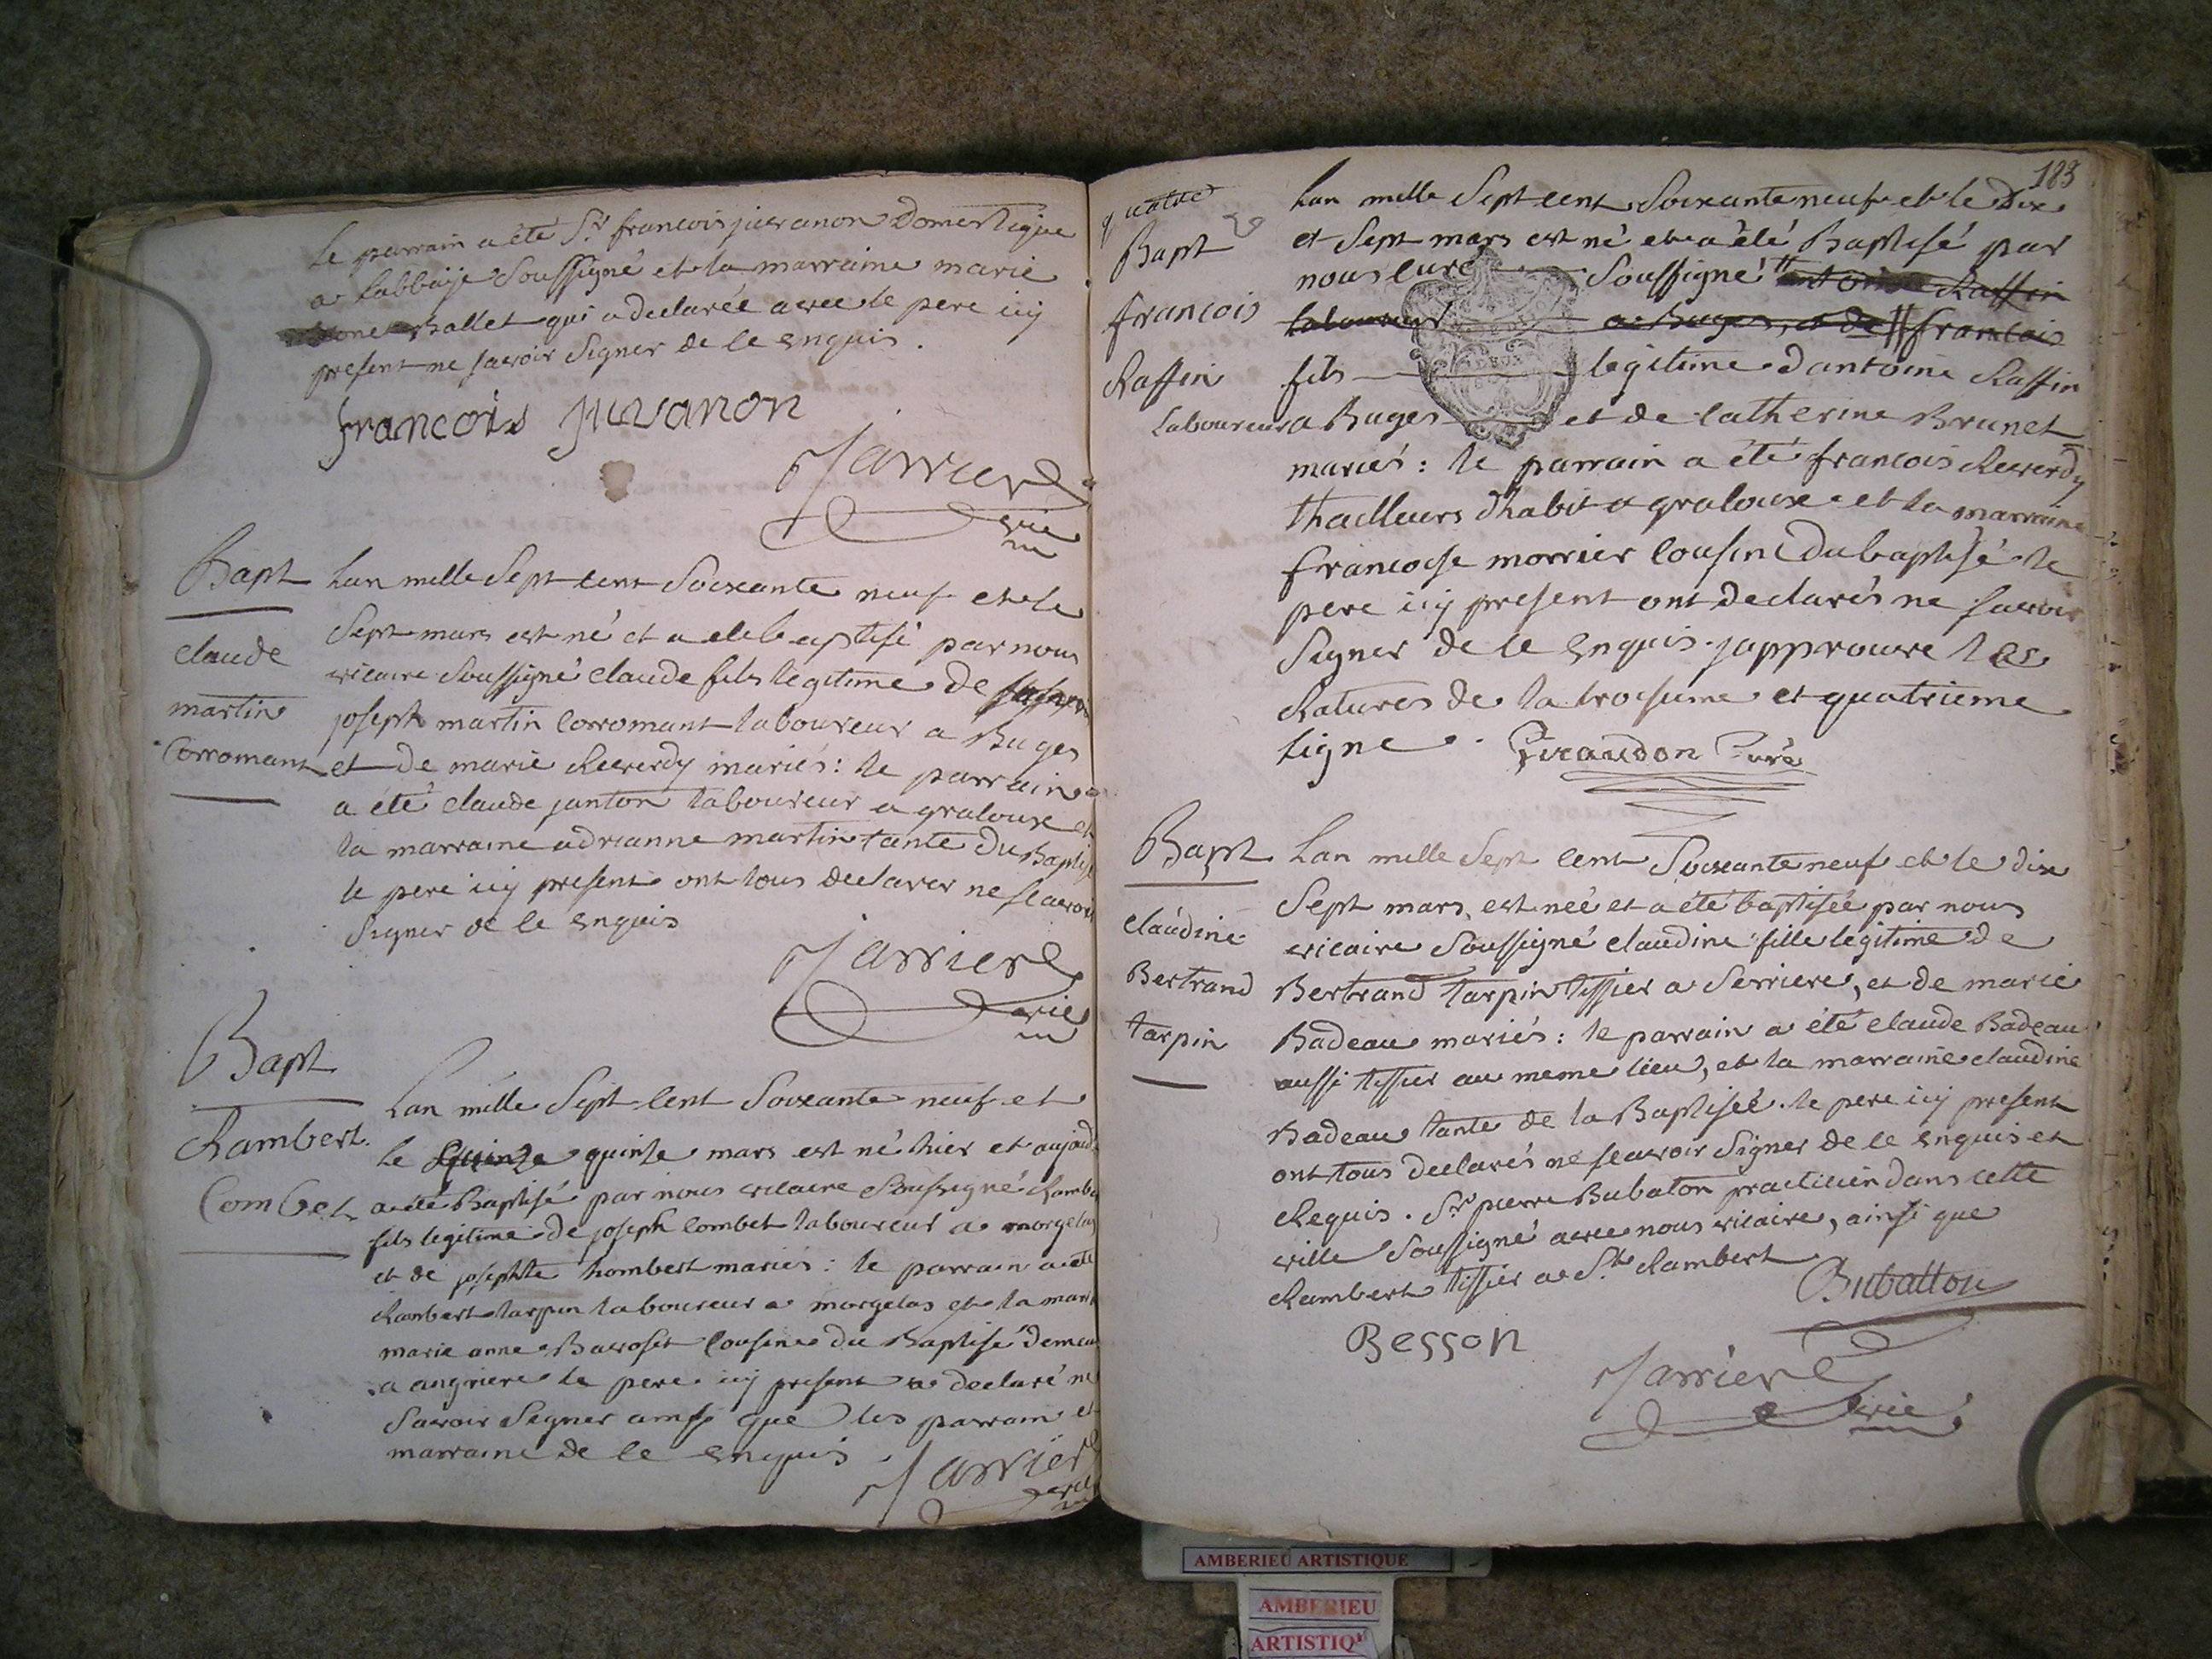 le parrain a été Sr francois juvanon Domestique
a labbaije Soussigné et la marraine marie
Ballet qui a declarée avec le pere icy
present ne savoir Signer de ce enquis.
francois juvanon
Jarriere
vic
Bapt
claude
martin
Corromant
Lan mille Sept cent Soixante neuf et le
Sept mars est né et a eté baptisé par nous
vicaire Soussigné claude fils legitime de
joseph martin Corromant laboureur a Buges
et de marie Reverdy mariés : le parrain
a été claude janton laboureur a graloux et
la marraine adrianne martin tante du Baptisé
le pere icy present ont tous declarer ne scavoir
Signer de ce enquis
Jarriere
vic
Bapt
Rambert
Combet
Lan mille Sept Cent Soixante neuf et
le quinze quinze mars est né hier et aujoud
a eté Baptisé par nous vicaire Soussigné Rambe
fils legitime de joseph Combet laboureur a morgelas
et de josephte hombert mariés : le parrain a eté
Rambert tarpin laboureur a morgelas et la marr
marie anne Bavoset Cousine du Baptisé demeu
a angriere le pere icy present a declaré ne
Savoir Signer ainsy que les parrain et
marraine de ce enquis
Jarriere
vic
183
quatre
Bapt
francois
Raffin
Lan mille Sept cent Soixante neuf et le Dix
et Sept mars est né et a été Baptisé par
nous curé Soussigné antoine Raffin
laboureur a Buges, et de francois
fils legitime d'antoine Raffin
Laboureur a Buges et de Catherine Brunet
mariés : le parrain a été francois Reverdy
thailleurs d'habit a graloux et la marraine
francoise morrier Cousine du baptisé le
pere icy present ont declarés ne savoir
Signer de ce enquis. japprouve les
Ratures de la troisieme et quatrieme
ligne. Girandon Curé
Bapt
Claudine
Bertrand
tarpin
Lan mille Sept Cent Soixante neuf et le dix
Sept mars, est neé et a été baptisée par nous
vicaire Soussigné claudine fille legitime de
Bertrand tarpin tissier a Serriere, et de marie
Badeau mariés : le parrain a été claude Badeau
aussi tissier au meme lieu, et la marraine claudine
Badeau tante de la Baptiseé. le pere icy present
ont tous declarés ne scavoir Signer de ce enquis et
Requis. Sr pierre Bubaton practicien dans cette
ville Soussigné avec nous vicaire, ainsi que
Rambert tissier a St Rambert
Bubatton
Besson
Jarriere
vic
AMBERIEU ARTISTIQUE
AMBERIEU
ARTISTIQ